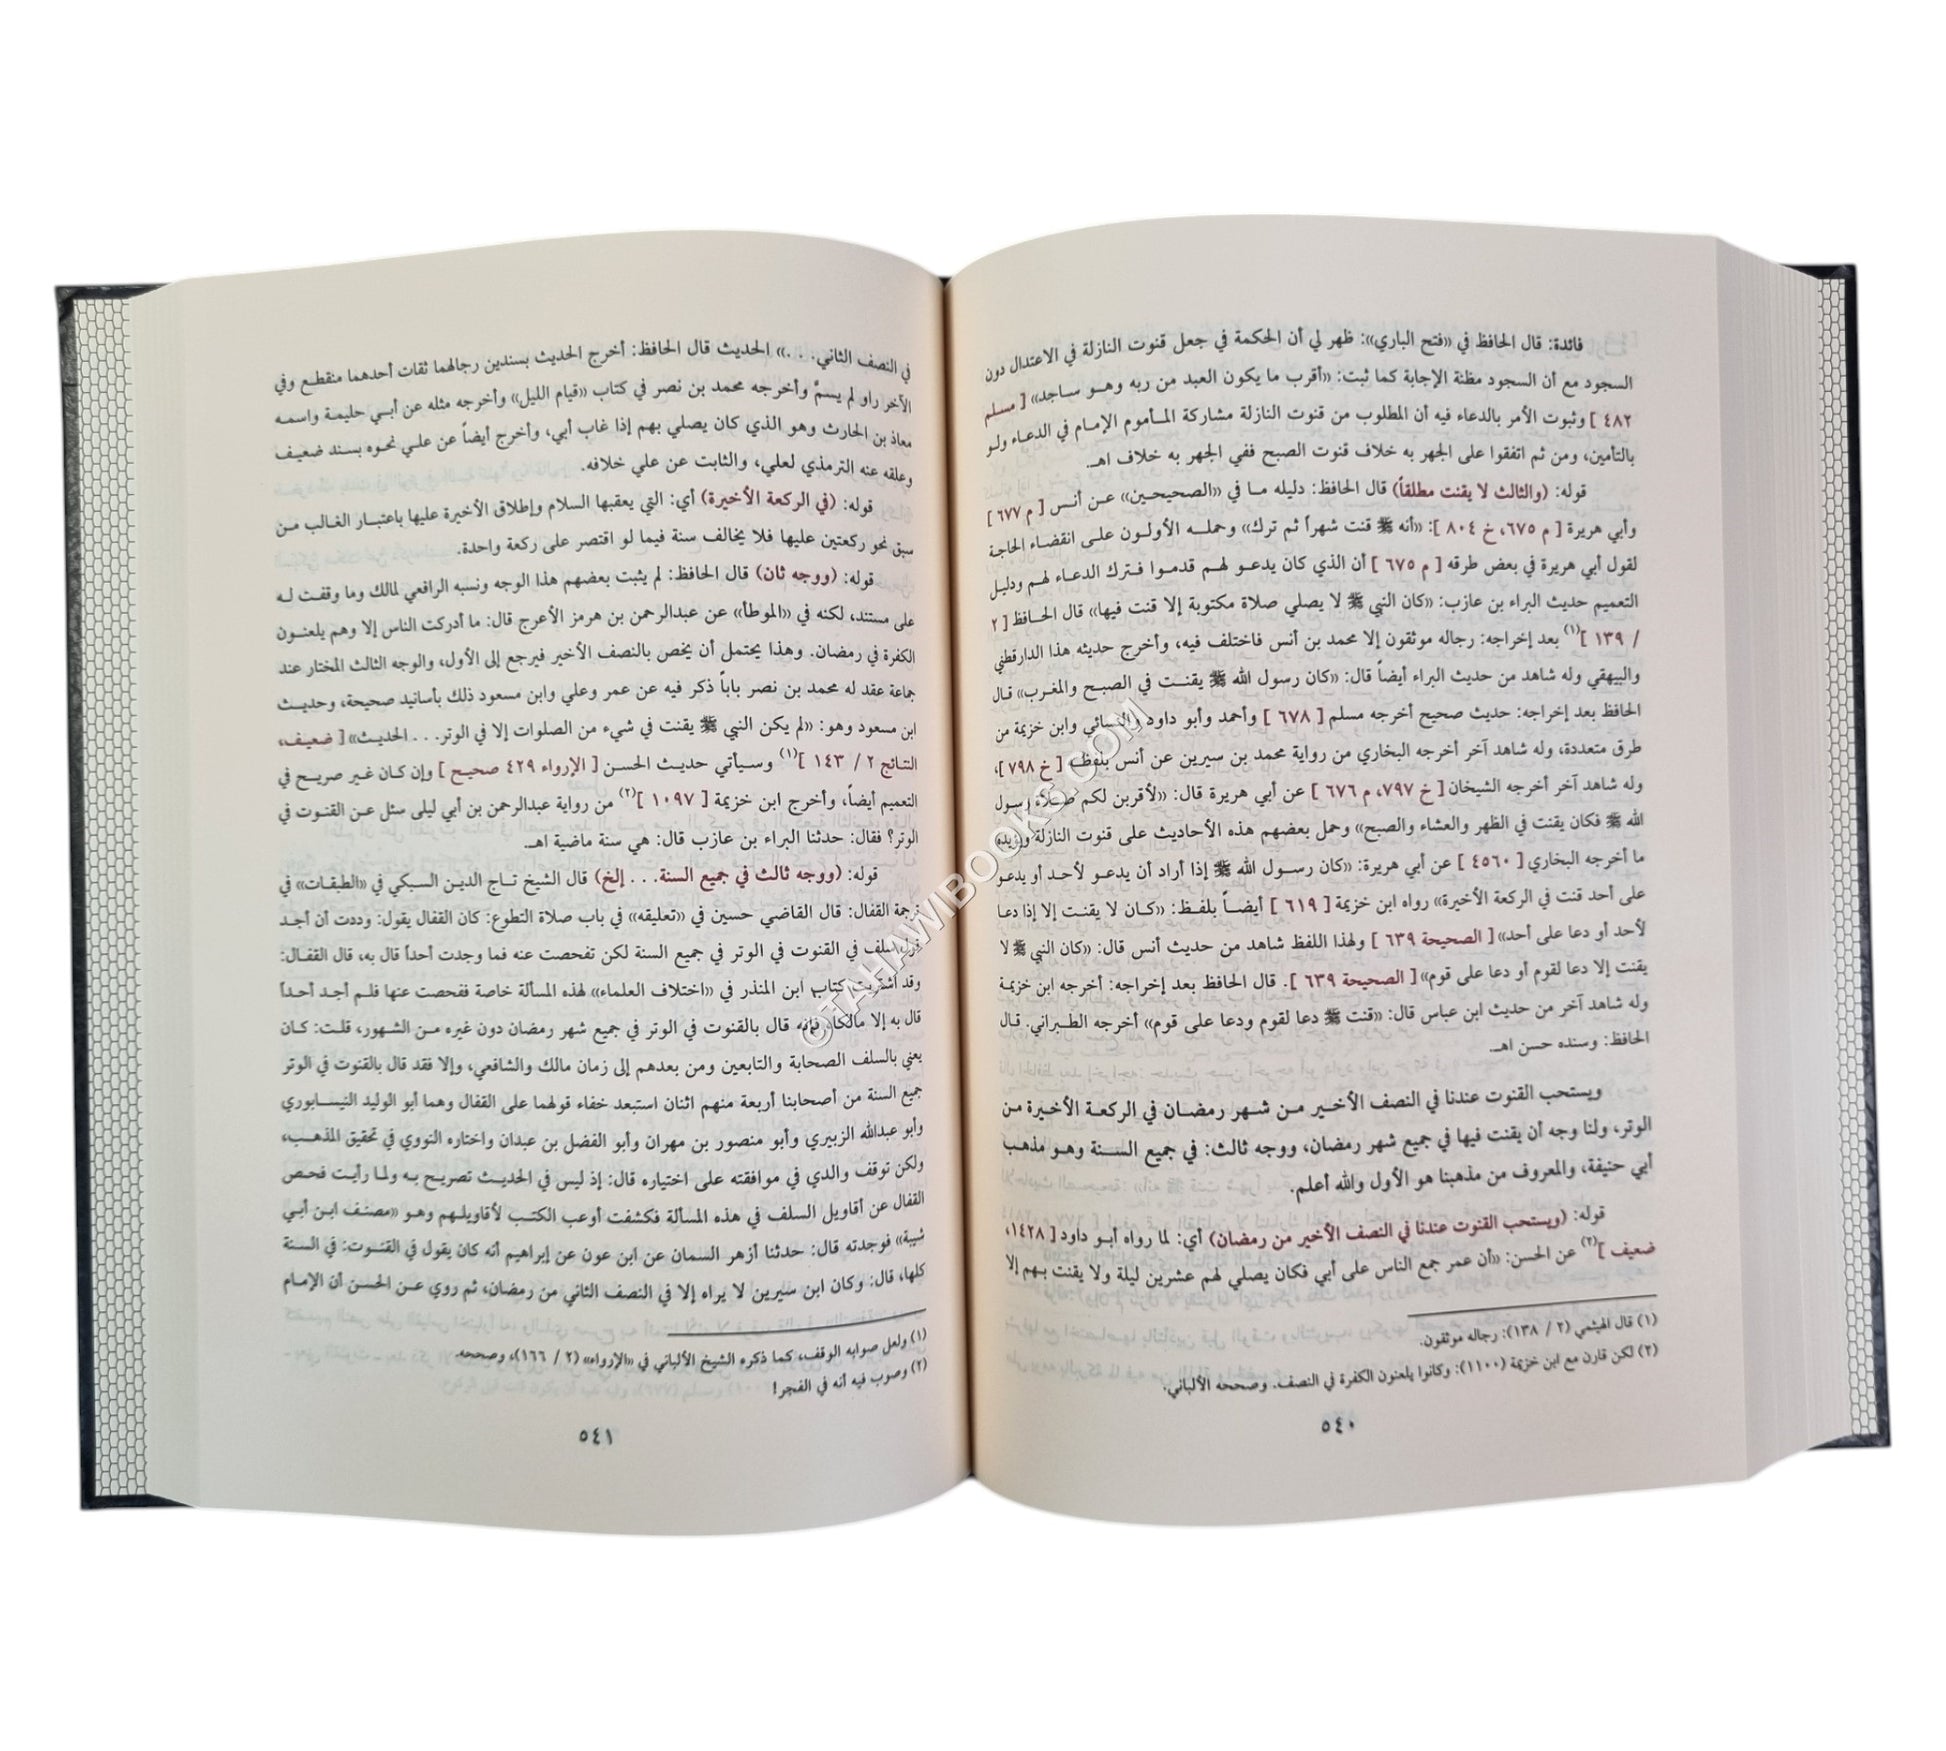 فائدة: قال الحافظ في «فتح الباري»: ظهر لي أن الحكمة في جعل قنوت النازلة في الاعتدال دون
السجود مع أن السجود مظنة الإجابة كما ثبت: «أقرب ما يكون العبد من ربه وهو ساجد» [ مسلم
٤٨٢ ] وثبوت الأمر بالدعاء فيه أن المطلوب من قنوت النازلة مشاركة المأموم الإمام في الدعاء ولو
بالتأمين، ومن ثم اتفقوا على الجهر به خلاف قنوت الصبح ففي الجهر به خلاف اهـ.
قوله: (والثالث لا يقنت مطلقاً) قال الحافظ: دليله ما في «الصحيحين» عن أنس [ م ٦٧٧ ]
وأبي هريرة [ م ٦٧٥، خ ٨٠٤ ]: «أنه ﷺ قنت شهراً ثم ترك» وحمله الأولون على انقضاء الحاجة
لقول أبي هريرة في بعض طرقه [ م ٦٧٥ ] أن الذي كان يدعو لهم قدموا فترك الدعاء لهم ودليل
التعميم حديث البراء بن عازب: «كان النبي ﷺ لا يصلي صلاة مكتوبة إلا قنت فيها» قال الحافظ [ ٢
/ ١٣٩ ](١) بعد إخراجه: رجاله موثقون إلا محمد بن أنس فاختلف فيه، وأخرج حديثه هذا الدارقطني
والبيهقي وله شاهد من حديث البراء أيضاً قال: «كان رسول الله ﷺ يقنت في الصبح والمغرب» قال
الحافظ بعد إخراجه: حديث صحيح أخرجه مسلم [ ٦٧٨ ] وأحمد وأبو داود والنسائي وابن خزيمة من
طرق متعددة، وله شاهد آخر أخرجه البخاري من رواية محمد بن سيرين عن أنس بلفظه [ خ ٧٩٨ ]،
وله شاهد آخر أخرجه الشيخان [ خ ٧٩٧، م ٦٧٦ ] عن أبي هريرة قال: «لأقربن لكم صلاة رسول
الله ﷺ فكان يقنت في الظهر والعشاء والصبح» وحمل بعضهم هذه الأحاديث على قنوت النازلة ويؤيده
ما أخرجه البخاري [ ٤٥٦٠ ] عن أبي هريرة: «كان رسول الله ﷺ إذا أراد أن يدعو لأحد أو يدعو
على أحد قنت في الركعة الأخيرة» رواه ابن خزيمة [ ٦١٩ ] أيضاً بلفظ: «كان لا يقنت إلا إذا دعا
لأحد أو دعا على أحد» [ الصحيحة ٦٣٩ ] ولهذا اللفظ شاهد من حديث أنس قال: «كان النبي ﷺ لا
يقنت إلا دعا لقوم أو دعا على قوم» [ الصحيحة ٦٣٩ ]. قال الحافظ بعد إخراجه: أخرجه ابن خزيمة
وله شاهد آخر من حديث ابن عباس قال: «قنت ﷺ دعا لقوم ودعا على قوم» أخرجه الطبراني. قال
الحافظ: وسنده حسن اهـ.
ويستحب القنوت عندنا في النصف الأخير من شهر رمضان في الركعة الأخيرة من
الوتر، ولنا وجه أن يقنت فيها في جميع شهر رمضان، ووجه ثالث: في جميع السنة وهو مذهب
أبي حنيفة، والمعروف من مذهبنا هو الأول والله أعلم.
قوله: (ويستحب القنوت عندنا في النصف الأخير من رمضان) أي: لما رواه أبو داود [ ١٤٢٨،
ضعيف ](٢) عن الحسن: «أن عمر جمع الناس على أبي فكان يصلي لهم عشرين ليلة ولا يقنت بهم إلا
(١) قال الهيثمي (٢ / ١٣٨): رجاله موثقون.
(٢) لكن قارن مع ابن خزيمة (١١٠٠): وكانوا يلعنون الكفرة في النصف. وصححه الألباني.
٥٤٠
في النصف الثاني. . .» الحديث قال الحافظ: أخرج الحديث بسندين رجالهما ثقات أحدهما منقطع وفي
الآخر راو لم يسمَّ وأخرجه محمد بن نصر في كتاب «قيام الليل» وأخرجه مثله عن أبي حليمة واسمه
معاذ بن الحارث وهو الذي كان يصلي بهم إذا غاب أبي، وأخرج أيضاً عن علي نحوه بسند ضعيف
وعلقه عنه الترمذي لعلي، والثابت عن علي خلافه.
قوله: (في الركعة الأخيرة) أي: التي يعقبها السلام وإطلاق الأخيرة عليها باعتبار الغالب من
سبق نحو ركعتين عليها فلا يخالف سنة فيما لو اقتصر على ركعة واحدة.
قوله: (ووجه ثان) قال الحافظ: لم يثبت بعضهم هذا الوجه ونسبه الرافعي لمالك وما وقفت له
على مستند، لكنه في «الموطأ» عن عبدالرحمن بن هرمز الأعرج قال: ما أدركت الناس إلا وهم يلعنون
الكفرة في رمضان. وهذا يحتمل أن يخص بالنصف الأخير فيرجع إلى الأول، والوجه الثالث المختار عند
جماعة عقد له محمد بن نصر باباً ذكر فيه عن عمر وعلي وابن مسعود ذلك بأسانيد صحيحة، وحديث
ابن مسعود وهو: «لم يكن النبي ﷺ يقنت في شيء من الصلوات إلا في الوتر. . . الحديث» [ ضعيف،
النتائج ٢ / ١٤٣ ](١) وسيأتي حديث الحسن [ الإرواء ٤٢٩ صحيح ] وإن كان غير صريح في
التعميم أيضاً، وأخرج ابن خزيمة [ ١٠٩٧ ](٢) من رواية عبدالرحمن بن أبي ليلى سئل عن القنوت في
الوتر؟ فقال: حدثنا البراء بن عازب قال: هي سنة ماضية اهـ.
قوله: (ووجه ثالث في جميع السنة. . . إلخ) قال الشيخ تاج الدين السبكي في «الطبقات» في
ترجمة القفال: قال القاضي حسين في «تعليقه» في باب صلاة التطوع: كان القفال يقول: وددت أن أجد
قول سلف في القنوت في الوتر في جميع السنة لكن تفحصت عنه فما وجدت أحداً قال به، قال القفال:
وقد اشتريت كتاب ابن المنذر في «اختلاف العلماء» لهذه المسألة خاصة ففحصت عنها فلم أجد أحداً
قال به إلا مالكاً، فإنه قال بالقنوت في الوتر في جميع شهر رمضان دون غيره من الشهور، قلت: كان
يعني بالسلف الصحابة والتابعين ومن بعدهم إلى زمان مالك والشافعي، وإلا فقد قال بالقنوت في الوتر
جميع السنة من أصحابنا أربعة منهم اثنان استبعد خفاء قولهما على القفال وهما أبو الوليد النيسابوري
وأبو عبدالله الزبيري وأبو منصور بن مهران وأبو الفضل بن عبدان واختاره النووي في تحقيق المذهب،
ولكن توقف والدي في موافقته على اختياره قال: إذ ليس في الحديث تصريح به ولما رأيت فحص
القفال عن أقاويل السلف في هذه المسألة فكشفت أوعب الكتب لأقاويلهم وهو «مصنف ابن أبي
شيبة» فوجدته قال: حدثنا أزهر السمان عن ابن عون عن إبراهيم أنه كان يقول في القنوت: في السنة
كلها، قال: وكان ابن سيرين لا يراه إلا في النصف الثاني من رمضان، ثم روي عن الحسن أن الإمام
(١) ولعل صوابه الوقف، كما ذكره الشيخ الألباني في «الإرواء» (٢ / ١٦٦)، وصححه.
(٢) وصوب فيه أنه في الفجر!
٥٤١
©TAHAWIBOOKS.COM